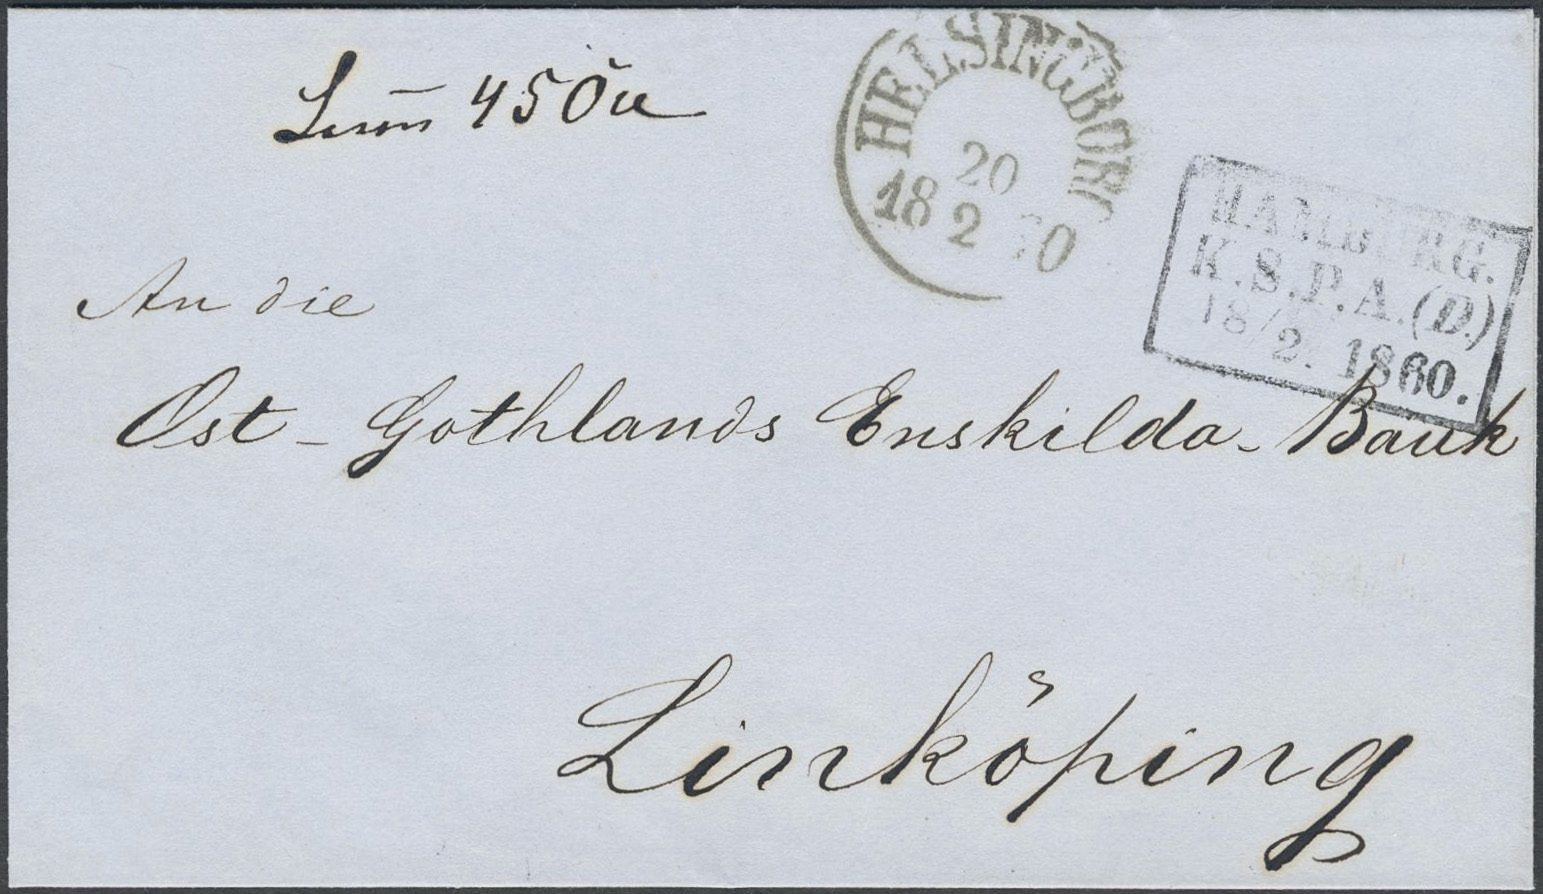 45 Öre
HELSINGBORG
20
18 2 60
HAMBURG.
K.S.P.A.(D.)
18/2. 1860.
An die
Ost-Gothlands Enskilda-Bank
Linköping